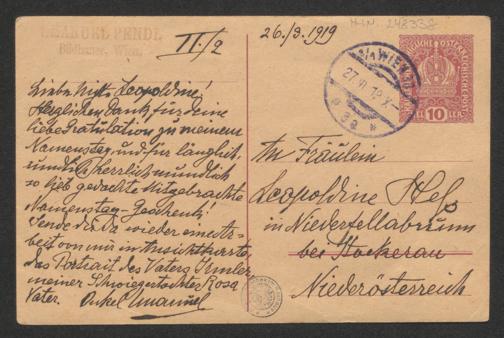 EMANUEL PENDL
Bildhauer, Wien
II./2
26./3. 1919
HIN 248338
Liebe Nichte Leopoldine!
Herzlichen Dank, für deine
liebe Gratulation zu meinem
Namenstag, und für
so lieb gedachte mitgebrachte
Namenstag-Geschenk.
Sende dir da wieder eine Ar-
beit von mir in Ansichtkarte
das Portrait des Vaters
meiner Schwiegertochter Rosa
Vater. Onkel Emanuel
DEUTSCHÖSTERREICH
10 HELLER
WIEN
27. 19
3a
An Fräulein
Leopoldine Heß
in Niederfellabrunn
bei Stockerau
Niederösterreich